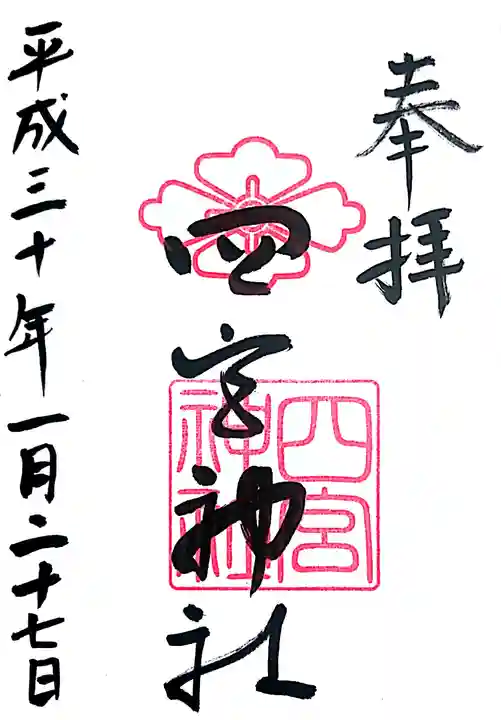 奉拝
四宮神社
四宮神社
平成三十年一月二十七日